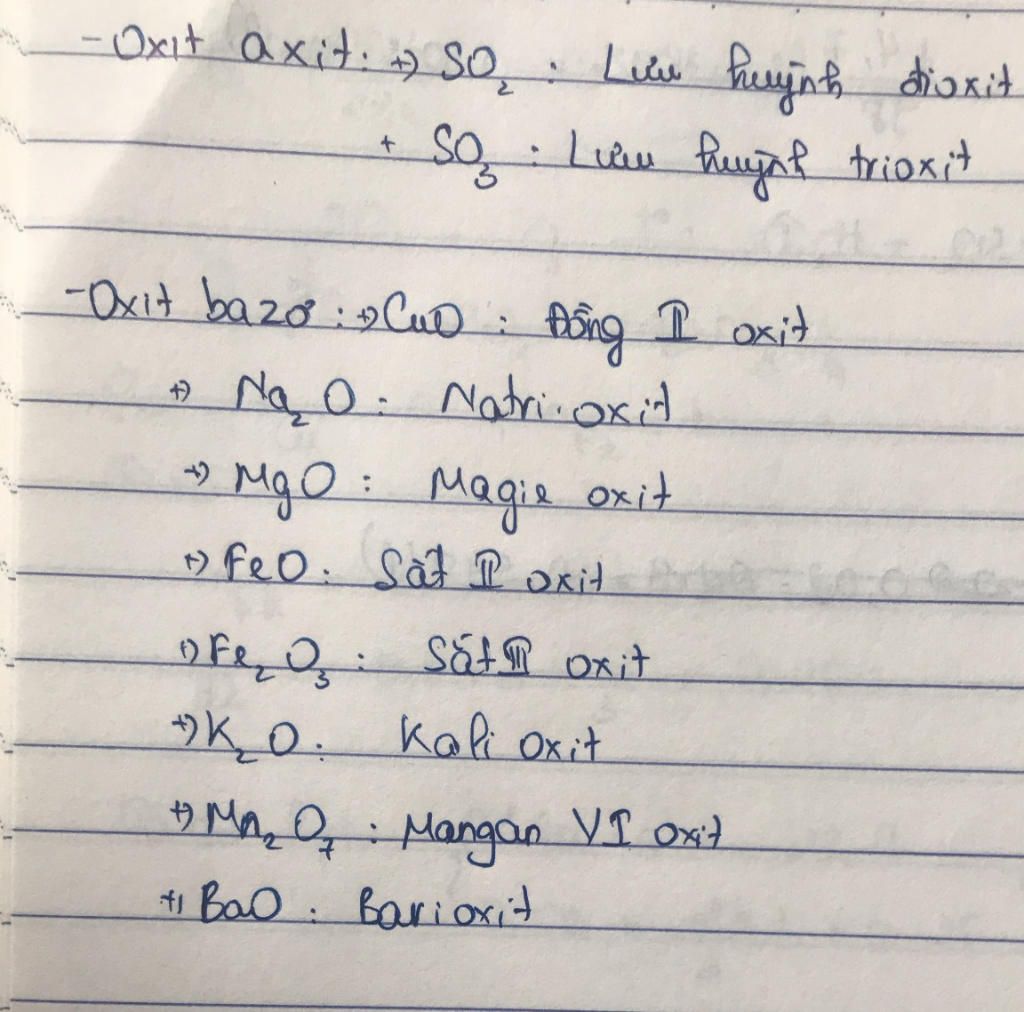 - Oxit axit: +) SO₂ : Lưu huỳnh đioxit
+ SO₃ : Lưu huỳnh trioxit
- Oxit bazơ : +) CuO : Đồng II oxit
+) Na₂O : Natri oxit
+) MgO : Magie oxit
+) FeO : Sắt II oxit
+) Fe₂O₃ : Sắt III oxit
+) K₂O : Kali oxit
+) Mn₂O₇ : Mangan VI oxit
+) BaO : Bari oxit